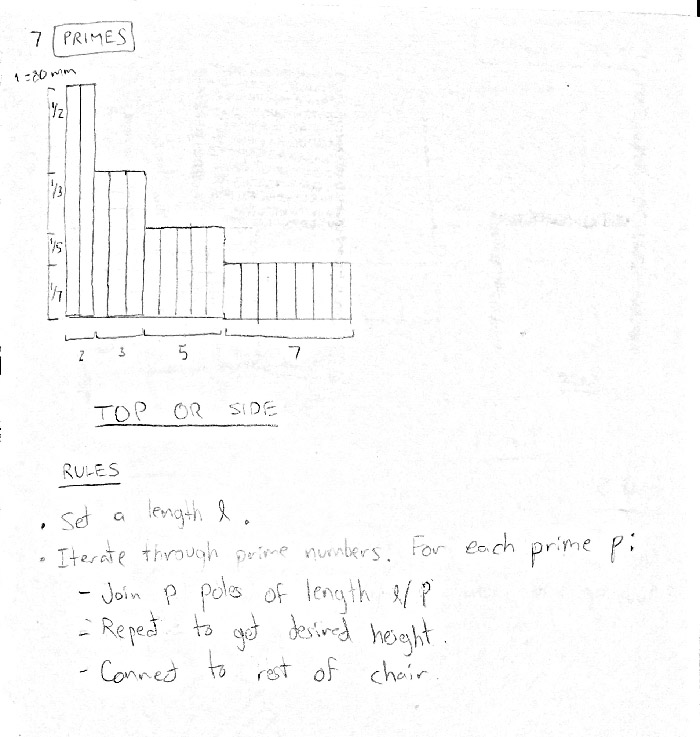 7 PRIMES
1 = 80 mm
1/2
1/3
1/5
1/7
2 3 5 7
TOP OR SIDE
RULES
• Set a length l.
• Iterate through prime numbers. For each prime p:
- Join p poles of length l/p
- Repeat to get desired height.
- Connect to rest of chair.